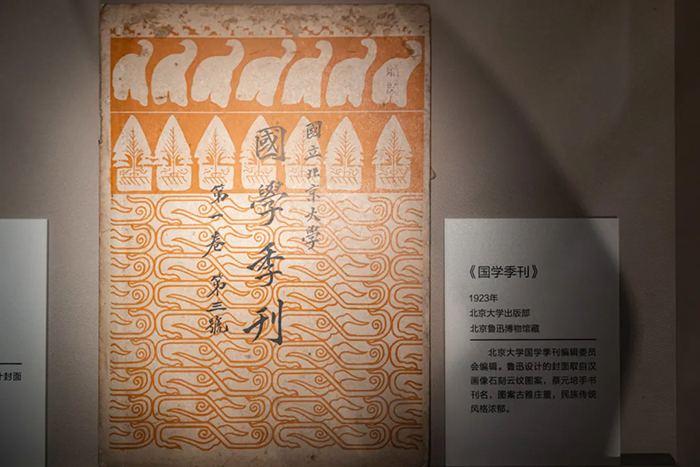 國立北京大學
國學季刊
第一卷 第三號
《国学季刊》
1923年
北京大学出版部
北京鲁迅博物馆藏
北京大学国学季刊编辑委员
会编辑。鲁迅设计的封面取自汉
画像石刻云纹图案，蔡元培手书
刊名，图案古雅庄重，民族传统
风格浓郁。
计封面